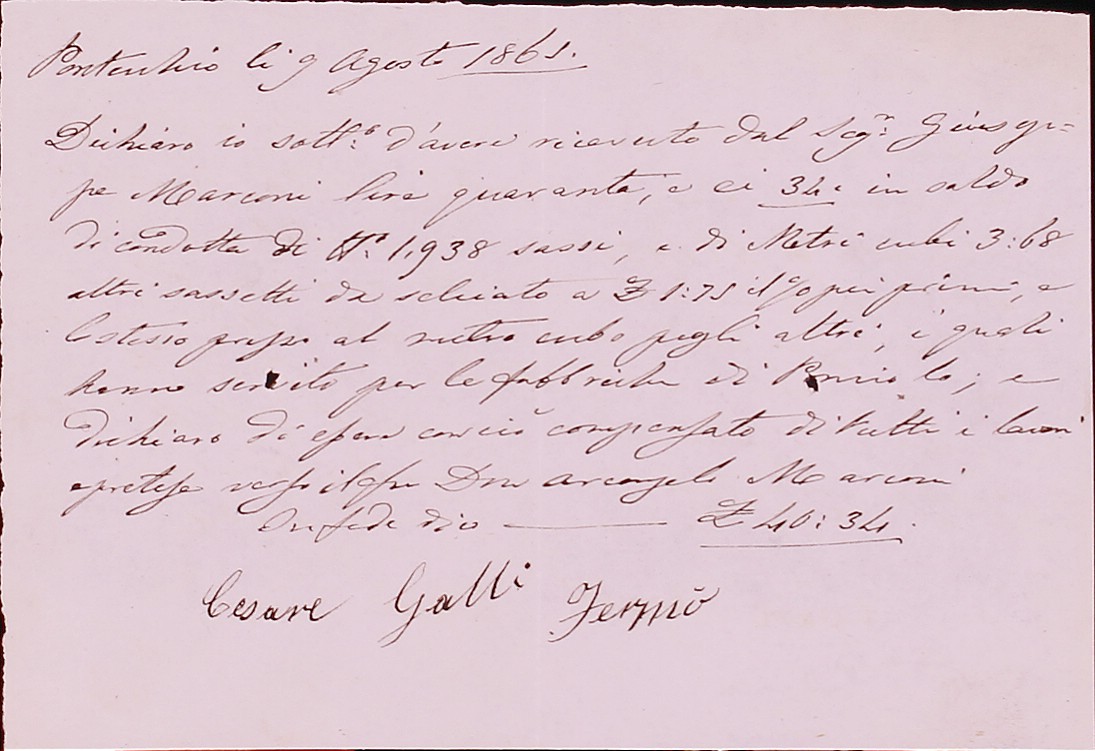 Pontecchio li 9 Agosto 1861.
Dichiaro io sott:o d'avere ricevuto dal Sig.r Giusep=
pe Marconi lire quaranta, e ci 34. in saldo
di condotta di N.o 1,938 sassi, e di Metri cubi 3:68
altri sassetti da selciato a £ 1:75 il % pei primi, e
lo stesso prezzo al metro cubo pegli altri, i quali
hanno servito per le fabbriche di; e
dichiaro di essere con ciò compensato di tutti i lavori
e pretese verso il fu Don Arcangelo Marconi
In fede dico ——— £ 40:34.
Cesare Galli Fermò